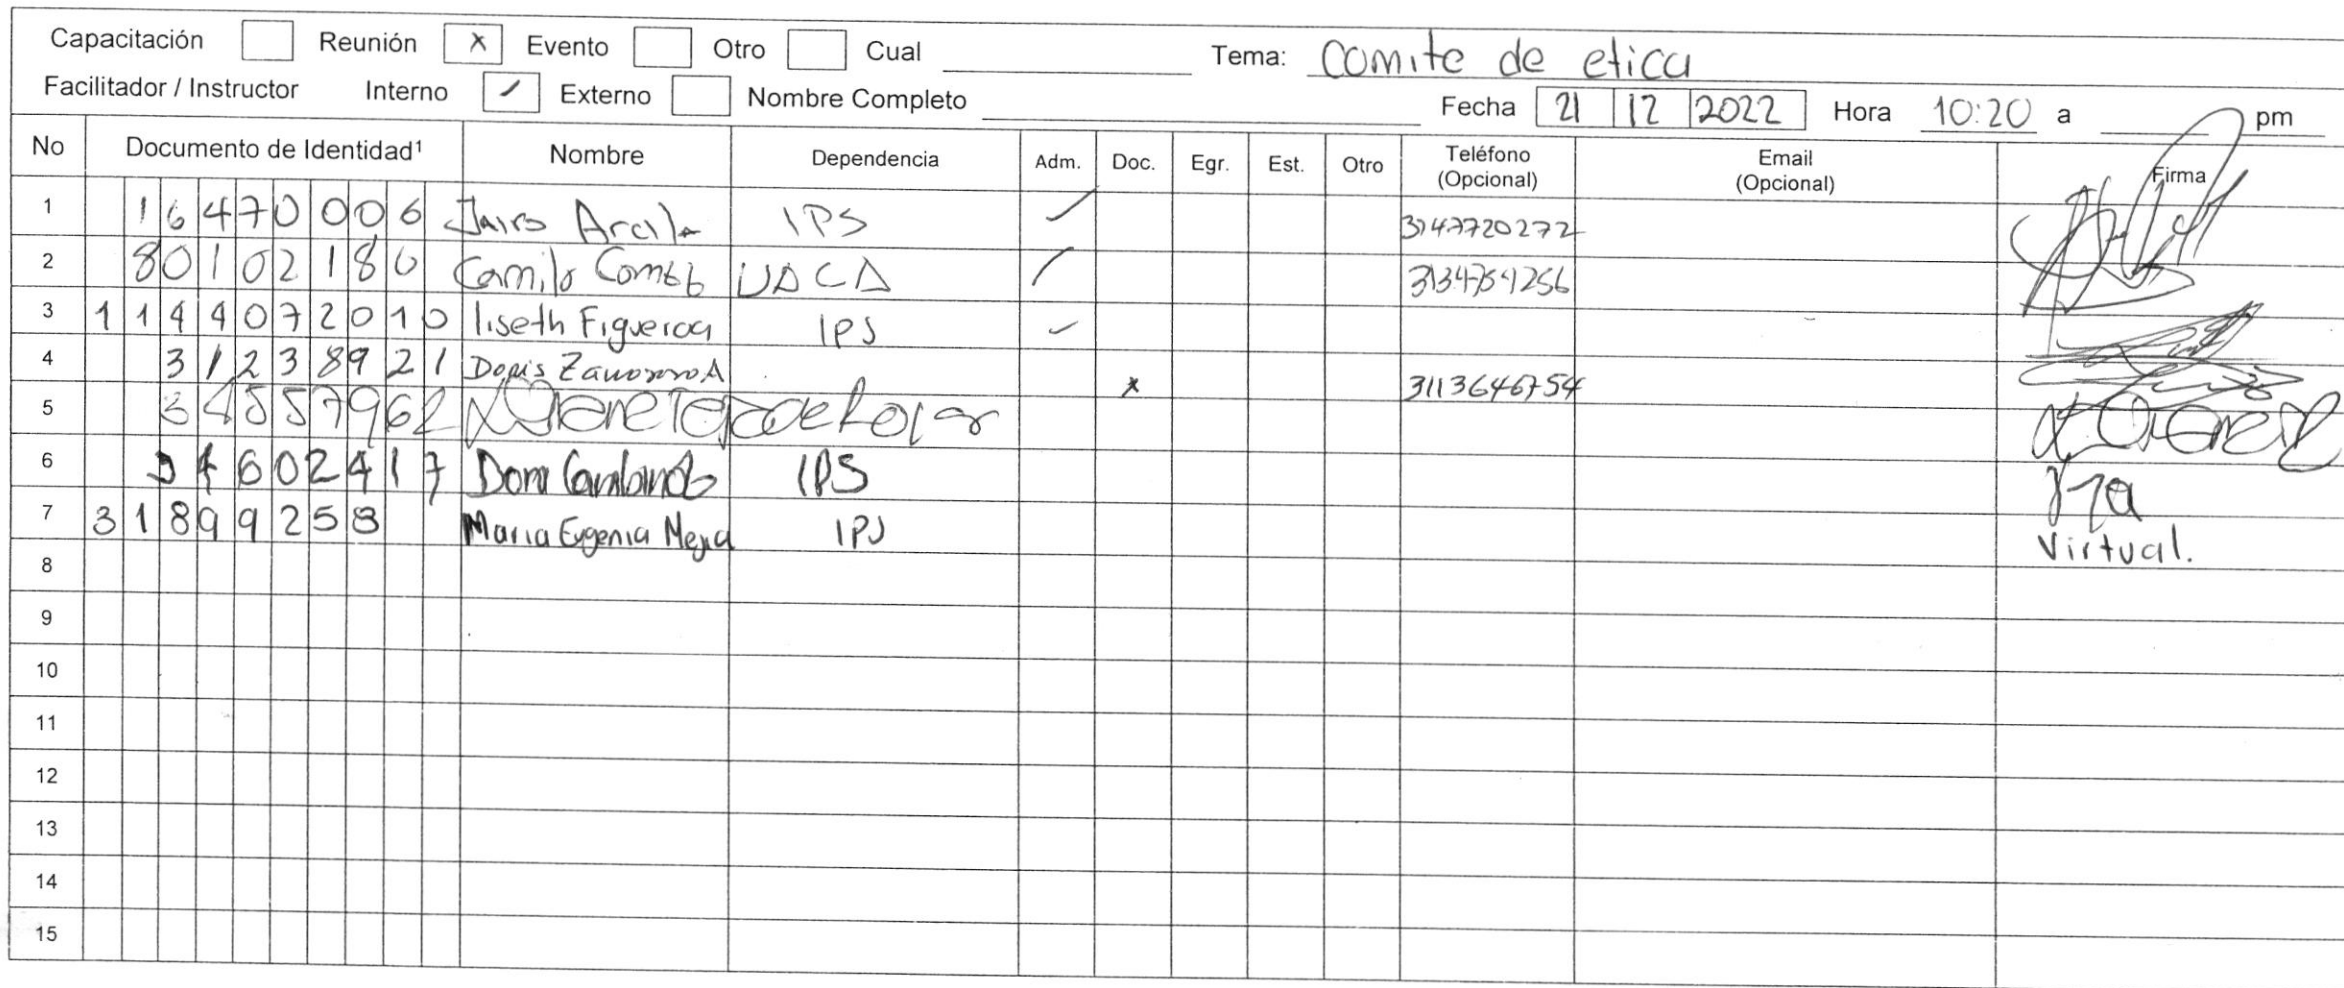 Capacitación Reunión X Evento Otro Cual Tema: comite de etica
Facilitador / Instructor Interno ✓ Externo Nombre Completo Fecha 21 12 2022 Hora 10:20 a pm
No Documento de Identidad¹ Nombre Dependencia Adm. Doc. Egr. Est. Otro Teléfono (Opcional) Email (Opcional) Firma
1 16470006 Jairo IPS ✓ 3147720272
2 80102180 Camilo UDCA ✓
3 1144072010 liseth Figueroa IPS ✓
4 31238921 Doris A x 3113646754
5
6 IPS
7 31899258 Maria Eugenia Mejia IPS Virtual.
8
9
10
11
12
13
14
15